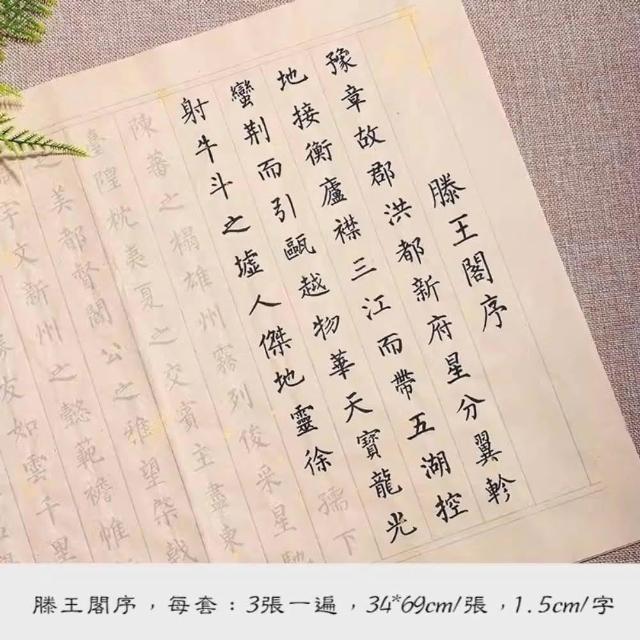 滕王閣序
豫章故郡洪都新府星分翼軫
地接衡廬襟三江而帶五湖控
蠻荆而引甌越物華天寶龍光
射牛斗之墟人傑地靈徐孺下
陳蕃之榻雄州霧列俊采星馳
臺隍枕夷夏之交賓主盡東
之美都督閻公之雅望棨戟
宇文新州之懿範襜帷
友如雲千里
滕王閣序，每套：3張一遍，34*69cm/張，1.5cm/字